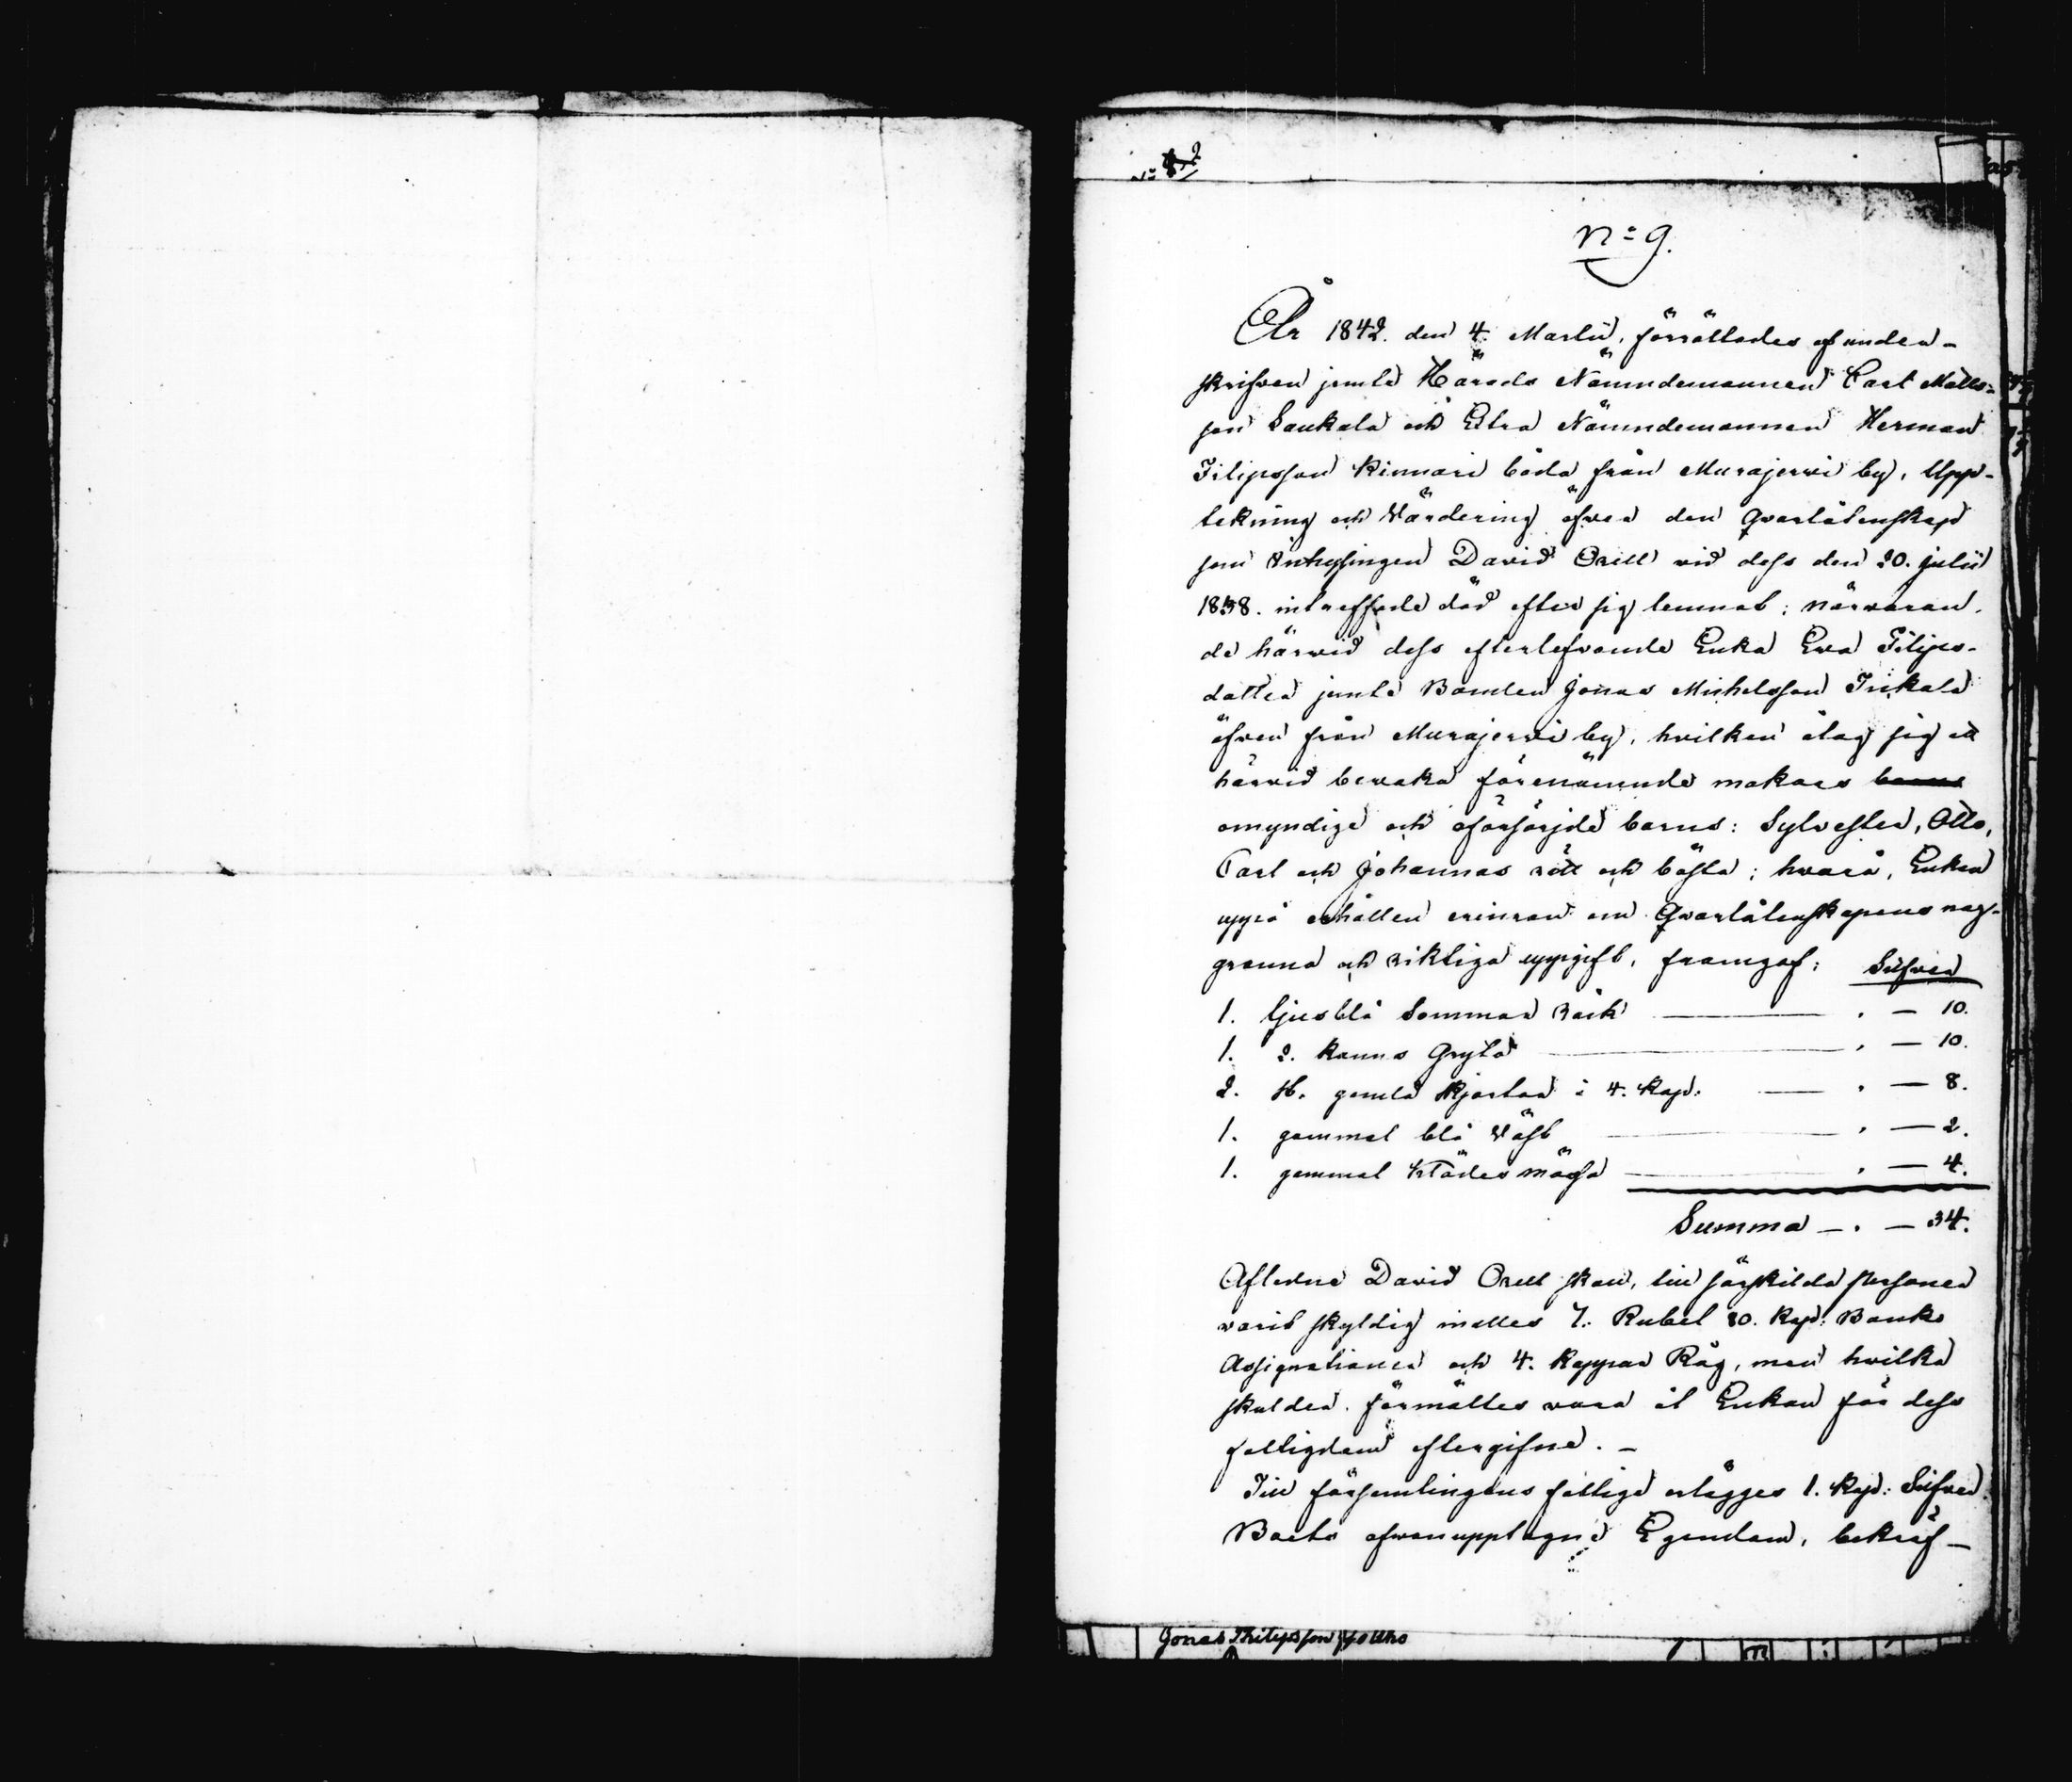 N:o 9.
År 1842. den 4. Martii, förrättades af under-
skrifven jemte Härads Nämndemannen Carl Matts-
son Laukala och Extra Nämndemannen Herman
Filipsson Kinnari båda från Murajerwi by, Upp-
tekning och Värdering öfver den Qvarlåtenskap
som Inhysingen David Orell vid dess den 20. Julii
1838. inträffade död efter sig lemnat; närvaran-
de härvid dess efterlefvande Enka Eva Filips-
dotter jemte Bonden Jonas Michelsson
äfven från Murajerwi by, hvilken åtag sig at
härvid bevaka förenämnde makars barns
omyndige och oförsörjde barns: Sylvester, Otto,
Carl och Johannas rätt och bästa; hvarå, Enkan
uppå erhållen erinran om Qvarlåtenskapens nog-
granna och riktiga uppgift, framgaf: Silfver
1. ljusblå Sommar råck . — 10.
1. 2. kanns Gryta . — 10.
2. st. gamla skjortor i 4. Kop. . — 8.
1. gammal blå Väst . — 2.
1. gammal Klädesmössa . — 4.
Summa — . — 34.
Aflidne David Orell skall, till särskilda personer
varit skyldig inalles 7. Rubel 20. Kop: Banko
Assignationer och 4. kappar Råg, men hvilka
skulder förmältes vara åt Enkan för dess
fattigdom eftergifne. —
Till församlingens fattige erlägges 1. Kop: Silfver.
Borto ofvanupptagne Egendom, bekräf-
Jonas Philipsson